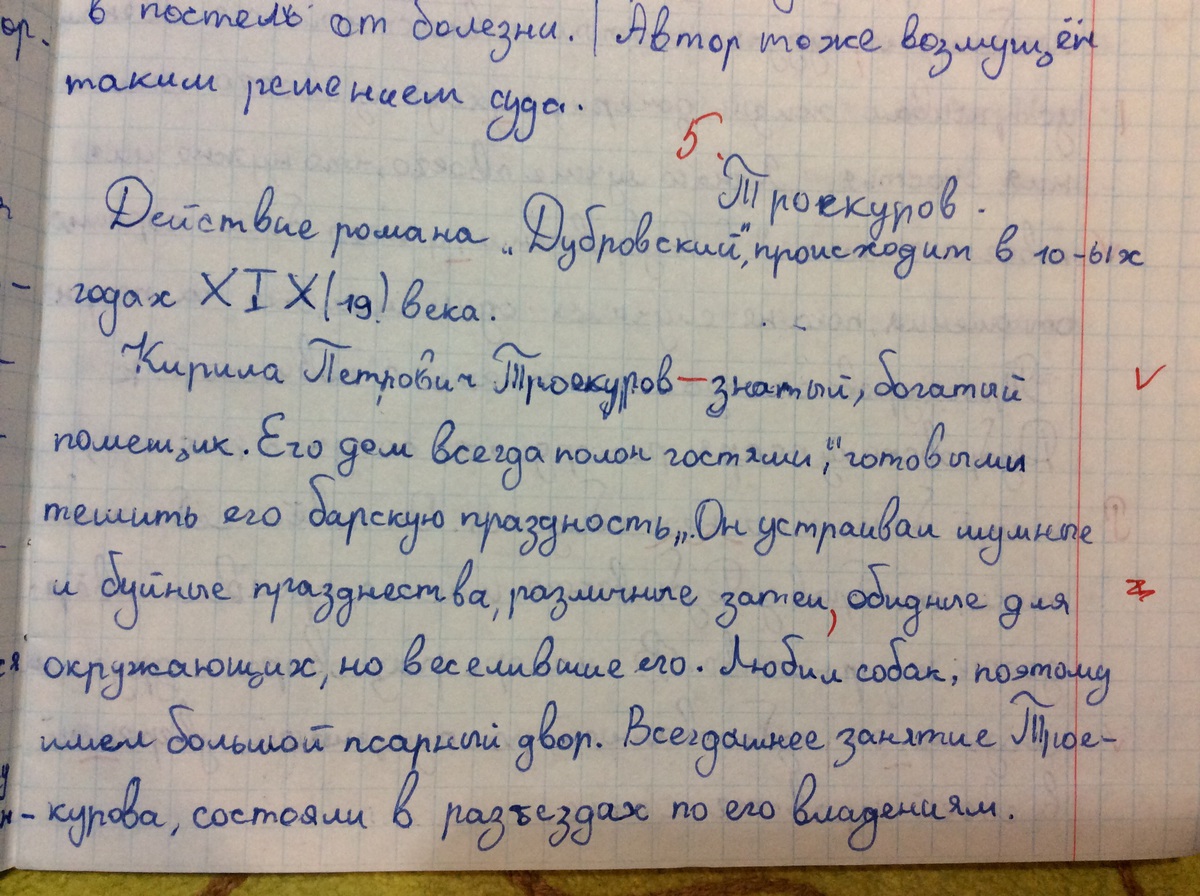 ор. в постель от болезни. | Автор тоже возмущён
таким решением суда.
5.
Троекуров.
Действие романа „Дубровский", происходит в 10-ых
годах XIX (19) века.
Кирила Петрович Троекуров — знатый, богатый
помещик. Его дом всегда полон гостями, "готовыми
тешить его барскую праздность„. Он устраивал шумные
и буйные празднества, различные затеи, обидные для
окружающих, но веселившие его. Любил собак, поэтому
имел большой псарный двор. Всегдашнее занятие Трое-
курова, состояли в разъездах по его владениям.